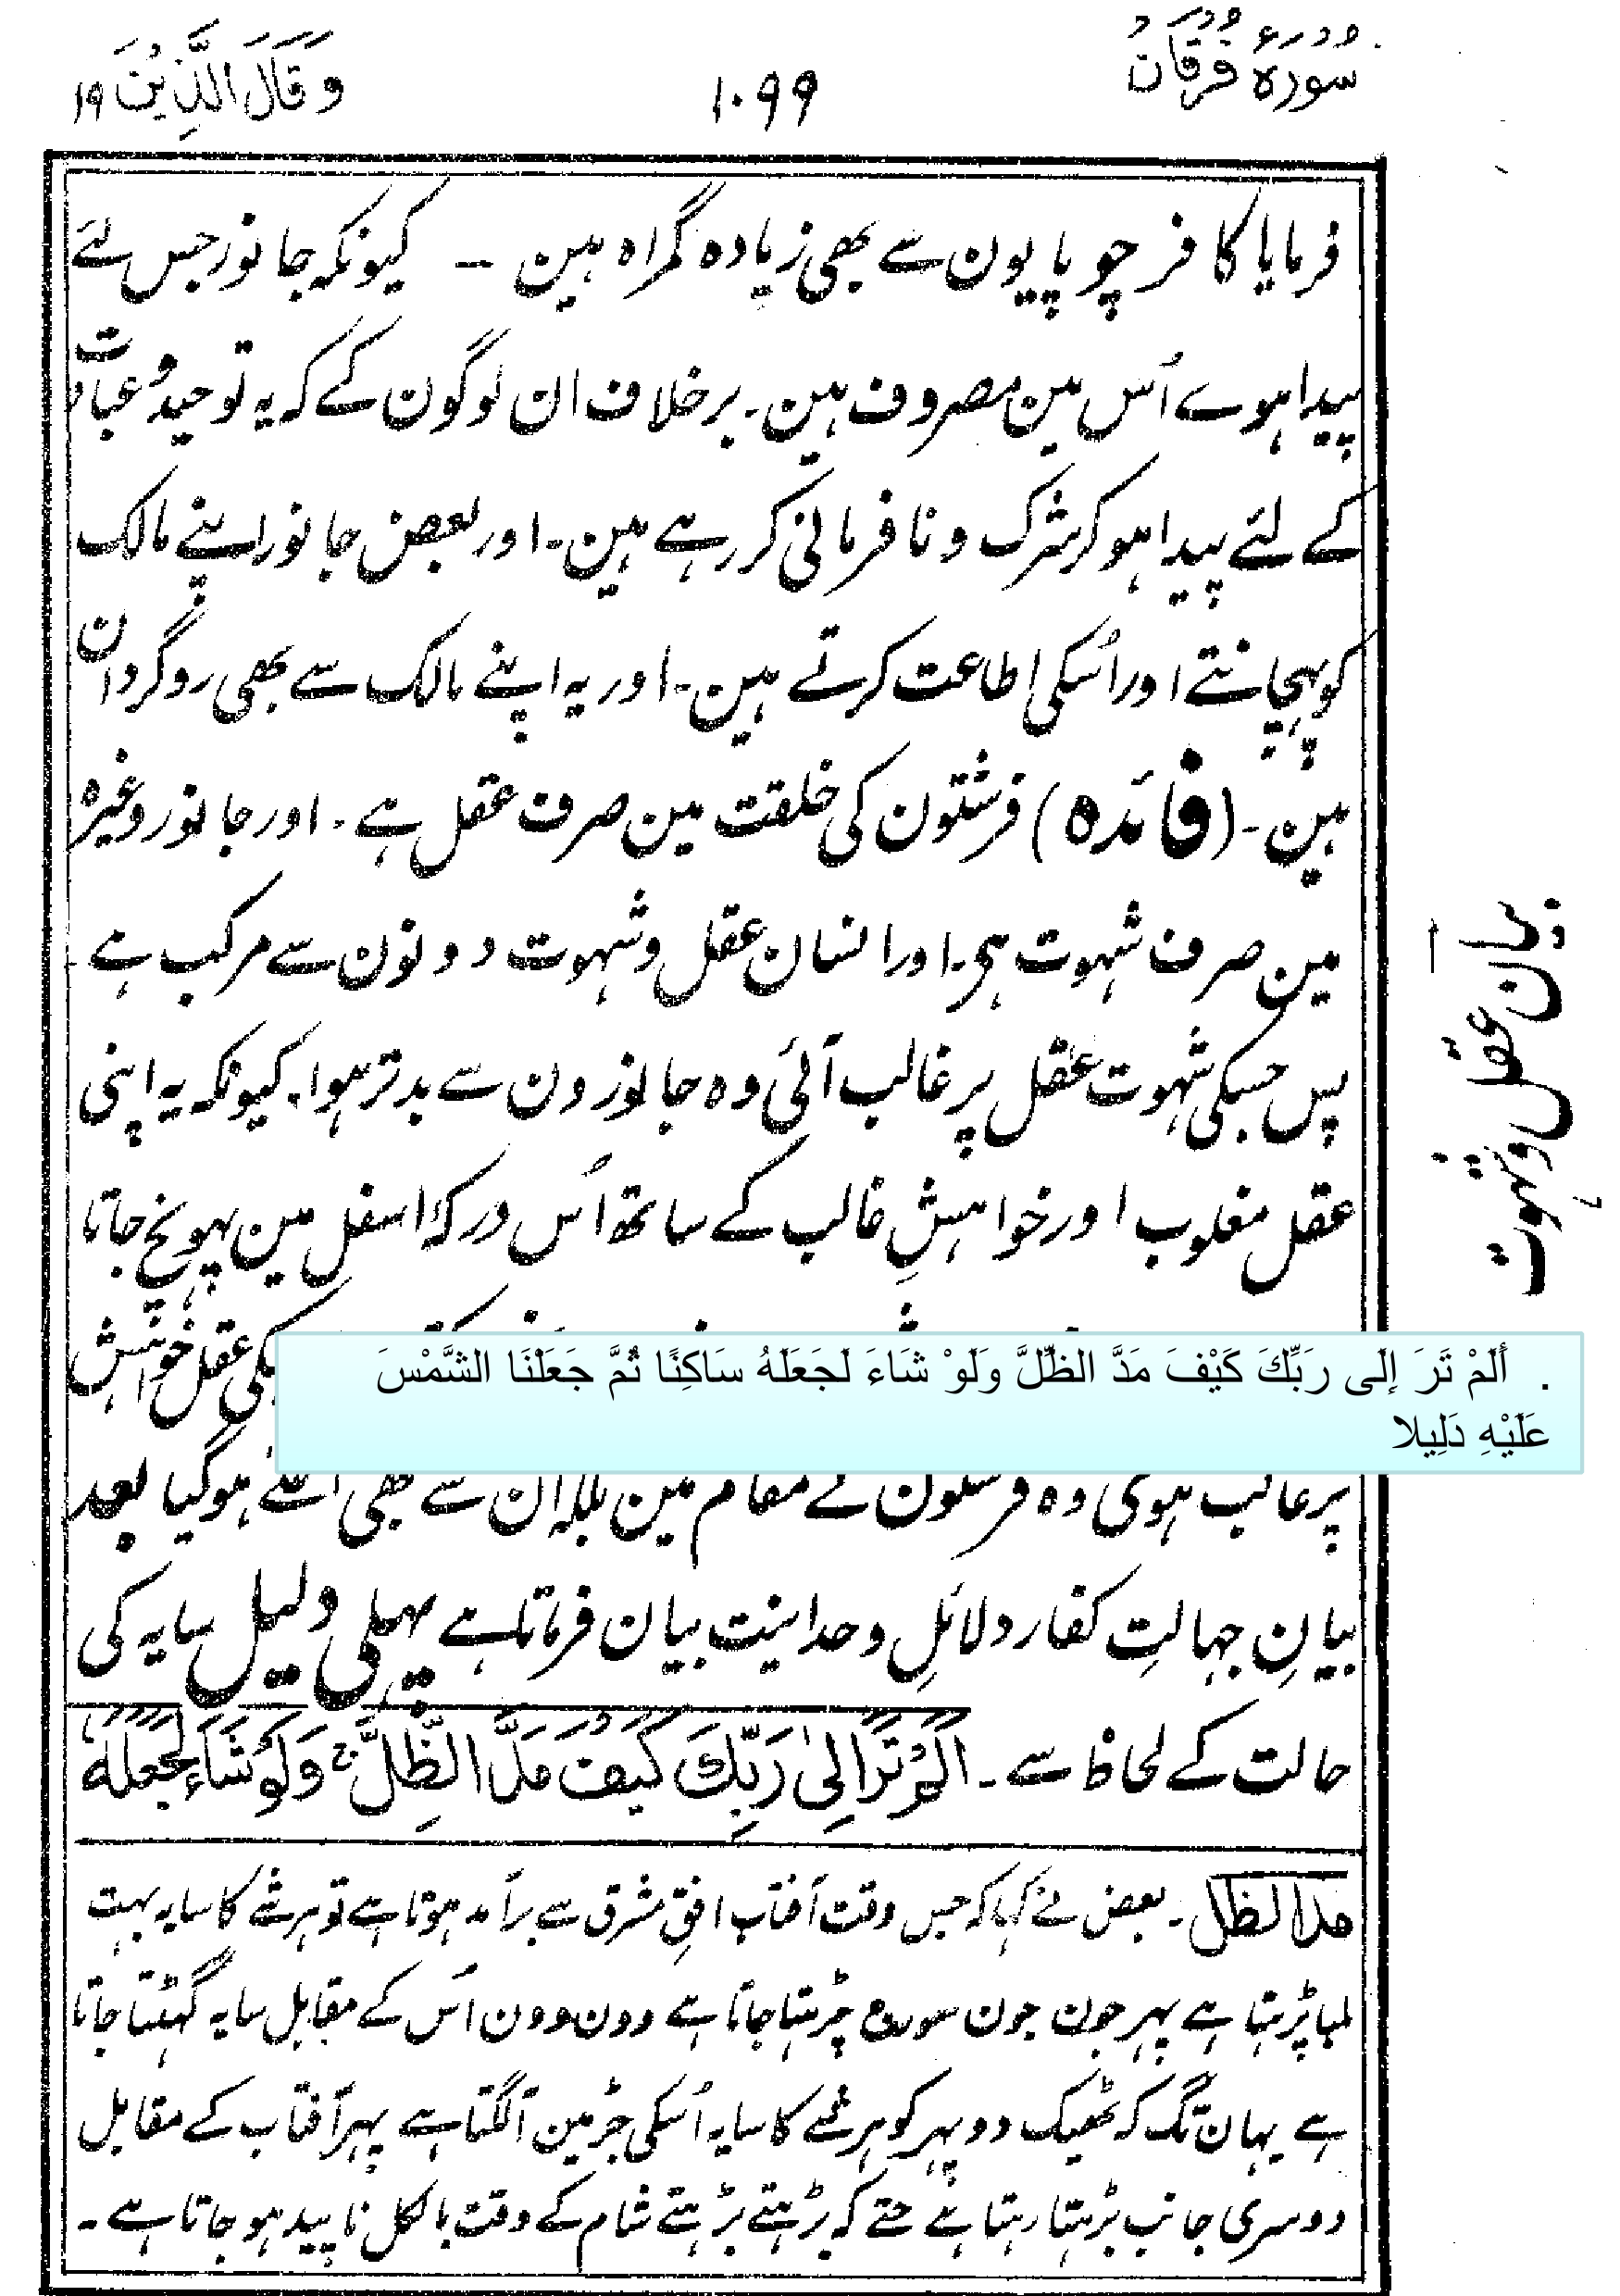 سورۂ فرقان ۱۰۹۹ وَقَالَ الَّذِیْنَ ۱۹
فرمایا کافر چوپایون سے بھی زیادہ گمراہ ہین -- کیونکہ جانور جس لئے
پیدا ہوے اُس مین مصروف ہین۔ برخلاف ان لوگون کے کہ یہ توحید و عبادت
کے لئے پیدا ہو کر شرک و نافرمانی کر رہے ہین۔ اور بعض جانور اپنے مالک
کو پہچانتے اور اُسکی اطاعت کرتے ہین۔ اور یہ اپنے مالک سے بھی روگردان
ہین۔ (فائدہ) فرشتون کی خلقت مین صرف عقل ہے۔ اور جانور وغیرہ
مین صرف شہوت ہی۔ اور انسان عقل و شہوت دونون سے مرکب ہے۔
پس جسکی شہوت عقل پر غالب آئی وہ جانورون سے بدتر ہوا۔ کیونکہ یہ اپنی
عقل مغلوب اور خواہشِ غالب کے ساتھ اُس درکۂ اسفل مین پہونچ جاتا
عقل خواہش
. أَلَمْ تَرَ إِلَى رَبِّكَ كَيْفَ مَدَّ الظِّلَّ وَلَوْ شَاءَ لَجَعَلَهُ سَاكِنًا ثُمَّ جَعَلْنَا الشَّمْسَ
عَلَيْهِ دَلِيلا
پر غالب ہوئی وہ فرشتون کے مقام مین بلکہ ان سے بھی اعلے ہو گیا بعد
بیانِ جہالتِ کفار دلائلِ وحدانیت بیان فرماتا ہے پہلی دلیل سایہ کی
حالت کے لحاظ سے۔ اَلَمْ تَرَ اِلیٰ رَبِّكَ كَیْفَ مَدَّ الظِّلَّ ۚ وَلَوْ شَآءَ لَجَعَلَهٗ
مد الظل۔ بعض نے کہا کہ جس وقت آفتاب افقِ مشرق سے برآمد ہوتا ہے تو ہر شے کا سایہ بہت
لمبا پڑہتا ہے پہر جون جون سورج چڑہتا جاتا ہے وون وون اُس کے مقابل سایہ گھٹتا جاتا
ہے یہان تک کہ ٹھیک دوپہر کو ہر شے کا سایہ اُسکی جڑ مین آلگتا ہے پہر آفتاب کے مقابل
دوسری جانب بڑہتا رہتا ہے حتے کہ بڑہتے بڑہتے شام کے وقت بالکل ناپید ہو جاتا ہے۔
بیان عقل و شہوت